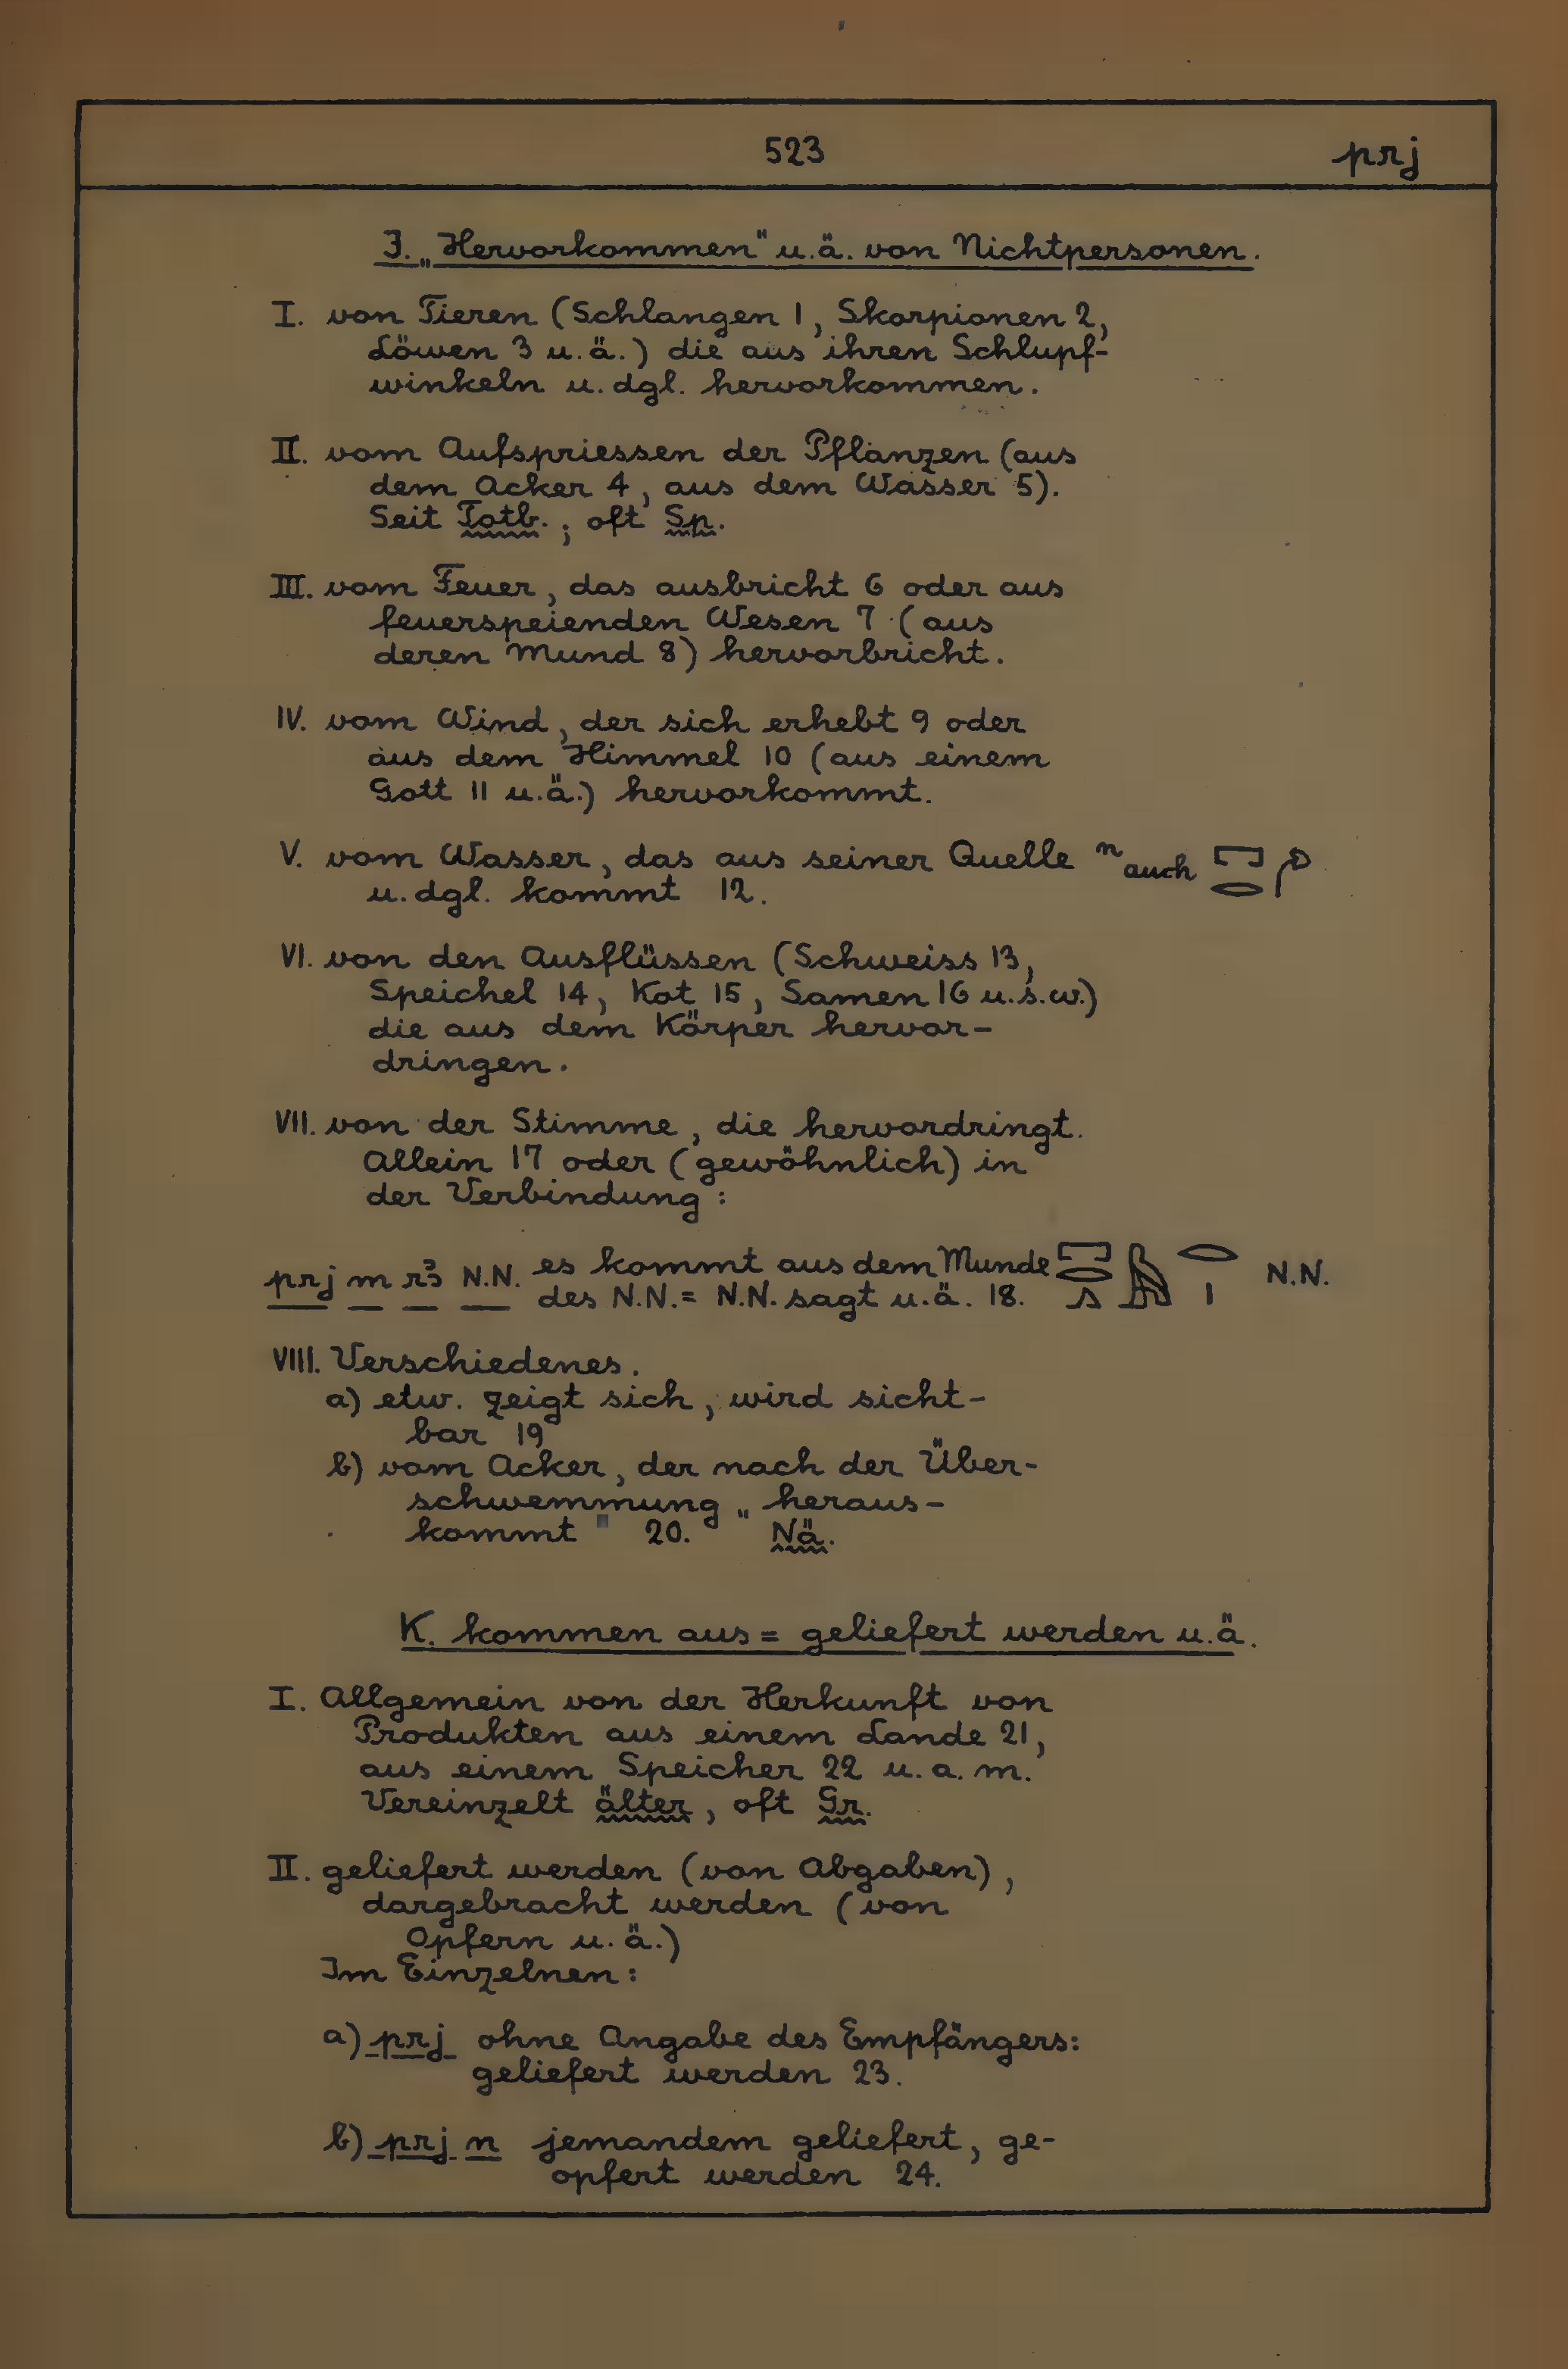 523
prj
J. „Hervorkommen" u.ä. von Nichtpersonen.
I. von Tieren (Schlangen 1, Skorpionen 2,
Löwen 3 u.ä.) die aus ihren Schlupf-
winkeln u. dgl. hervorkommen.
II. vom Aufspriessen der Pflanzen (aus
dem Acker 4, aus dem Wasser 5).
Seit Totb.; oft Sp.
III. vom Feuer, das ausbricht 6 oder aus
feuerspeienden Wesen 7 (aus
deren Mund 8) hervorbricht.
IV. vom Wind, der sich erhebt 9 oder
aus dem Himmel 10 (aus einem
Gott 11 u.ä.) hervorkommt.
V. vom Wasser, das aus seiner Quelle n auch 𓉐𓂋𓌙
u. dgl. kommt 12.
VI. von den Ausflüssen (Schweiss 13,
Speichel 14, Kot 15, Samen 16 u.s.w.)
die aus dem Körper hervor-
dringen.
VII. von der Stimme, die hervordringt.
Allein 17 oder (gewöhnlich) in
der Verbindung:
prj m rꜣ N.N. es kommt aus dem Munde 𓉐𓂋𓂻𓅓𓂋𓏤 N.N.
des N.N. = N.N. sagt u.ä. 18.
VIII. Verschiedenes.
a) etw. zeigt sich, wird sicht-
bar 19
b) vom Acker, der nach der Über-
schwemmung „heraus-
kommt" 20. Nä.
K. kommen aus = geliefert werden u.ä.
I. Allgemein von der Herkunft von
Produkten aus einem Lande 21,
aus einem Speicher 22 u. a. m.
Vereinzelt älter, oft Gr.
II. geliefert werden (von Abgaben),
dargebracht werden (von
Opfern u.ä.)
Im Einzelnen:
a) prj ohne Angabe des Empfängers:
geliefert werden 23.
b) prj n jemandem geliefert, ge-
opfert werden 24.